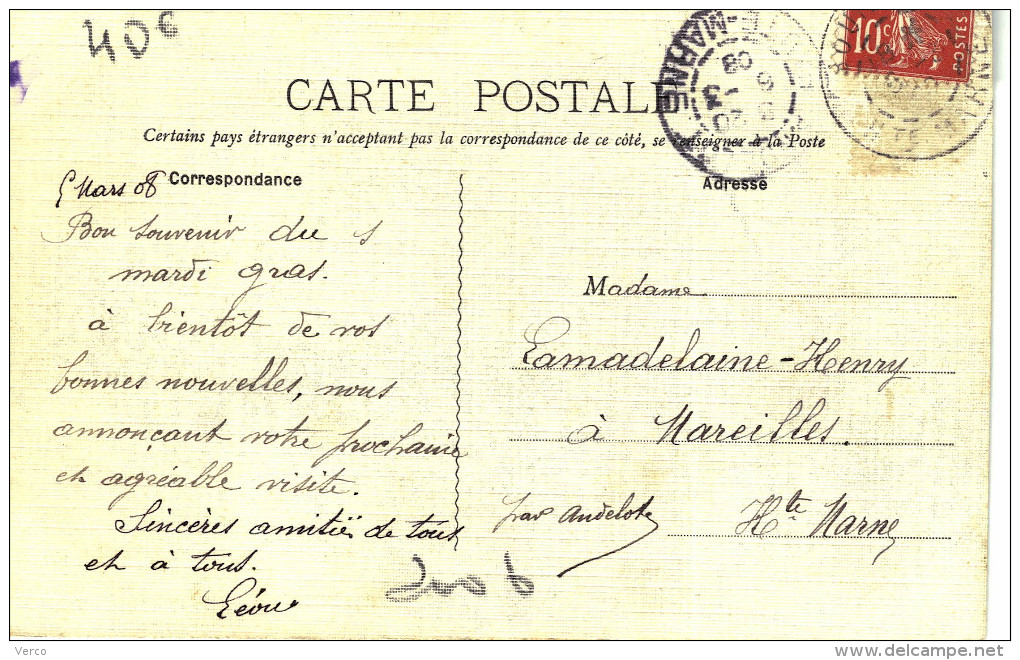 40€
10c
POSTES
E-MARNE
CARTE POSTALE
Certains pays étrangers n'acceptant pas la correspondance de ce côté, se renseigner à la Poste
5 Mars 08
Correspondance
Adresse
Bon souvenir du
mardi gras.
à bientôt de vos
bonnes nouvelles, nous
annonçant votre prochaine
et agréable visite.
Sincères amitiés de tous
et à tous.
Léon
Madame
Lamadelaine-Henry
à Mareilles.
par Andelot
Hte Marne
Verco
www.delcampe.net